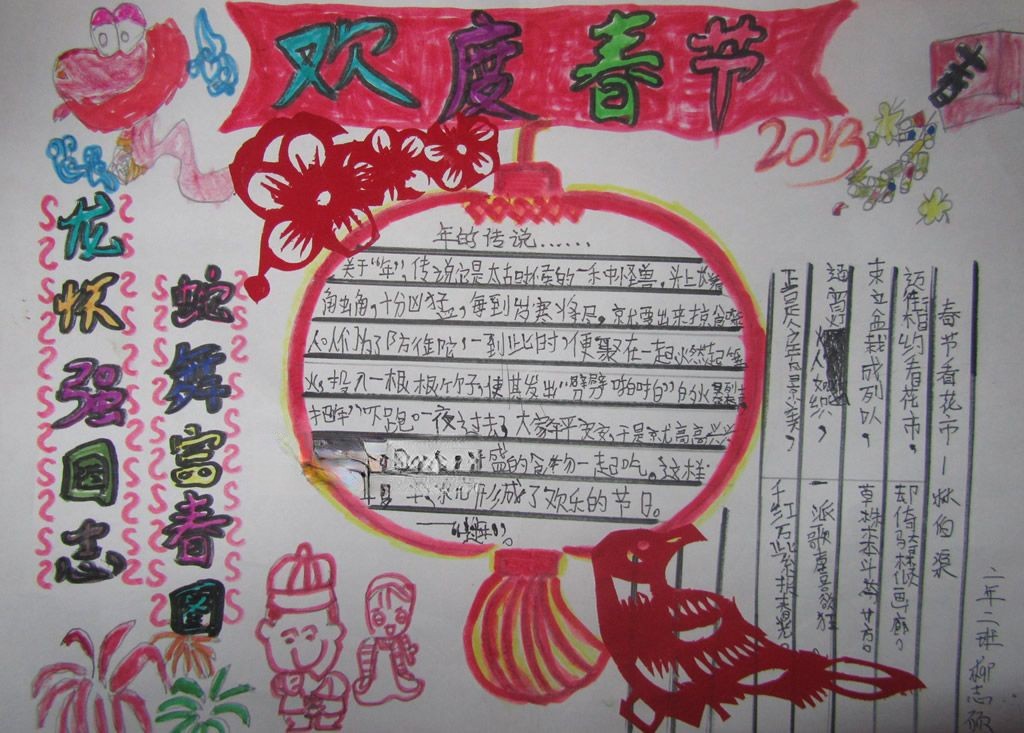 欢度春节
2013
春
龙怀强国志
蛇舞富春图
年的传说……
关于"年",传说它是太古时候的一种怪兽,头上长着
角,十分凶猛,每到岁寒将尽,就要出来掠食
人们为了防住它,一到此时,便聚在一起,燃起
火,投入一根根竹子,使其发出"劈劈啪啪"的火爆
把"年"吓跑。一夜过去了,大家平安,于是就高高兴兴
盛的食物一起吃。这样
形成了欢乐的节日。
春节看花市—林伯渠
迈街相约看花市,
却倚骑楼似画廊。
束立盆栽成列队,
草株木本斗芬芳。
通宵灯火人如织,
一派歌声喜欲狂
正是今年风景美,
千红万紫报春光
二年二班柳志硕